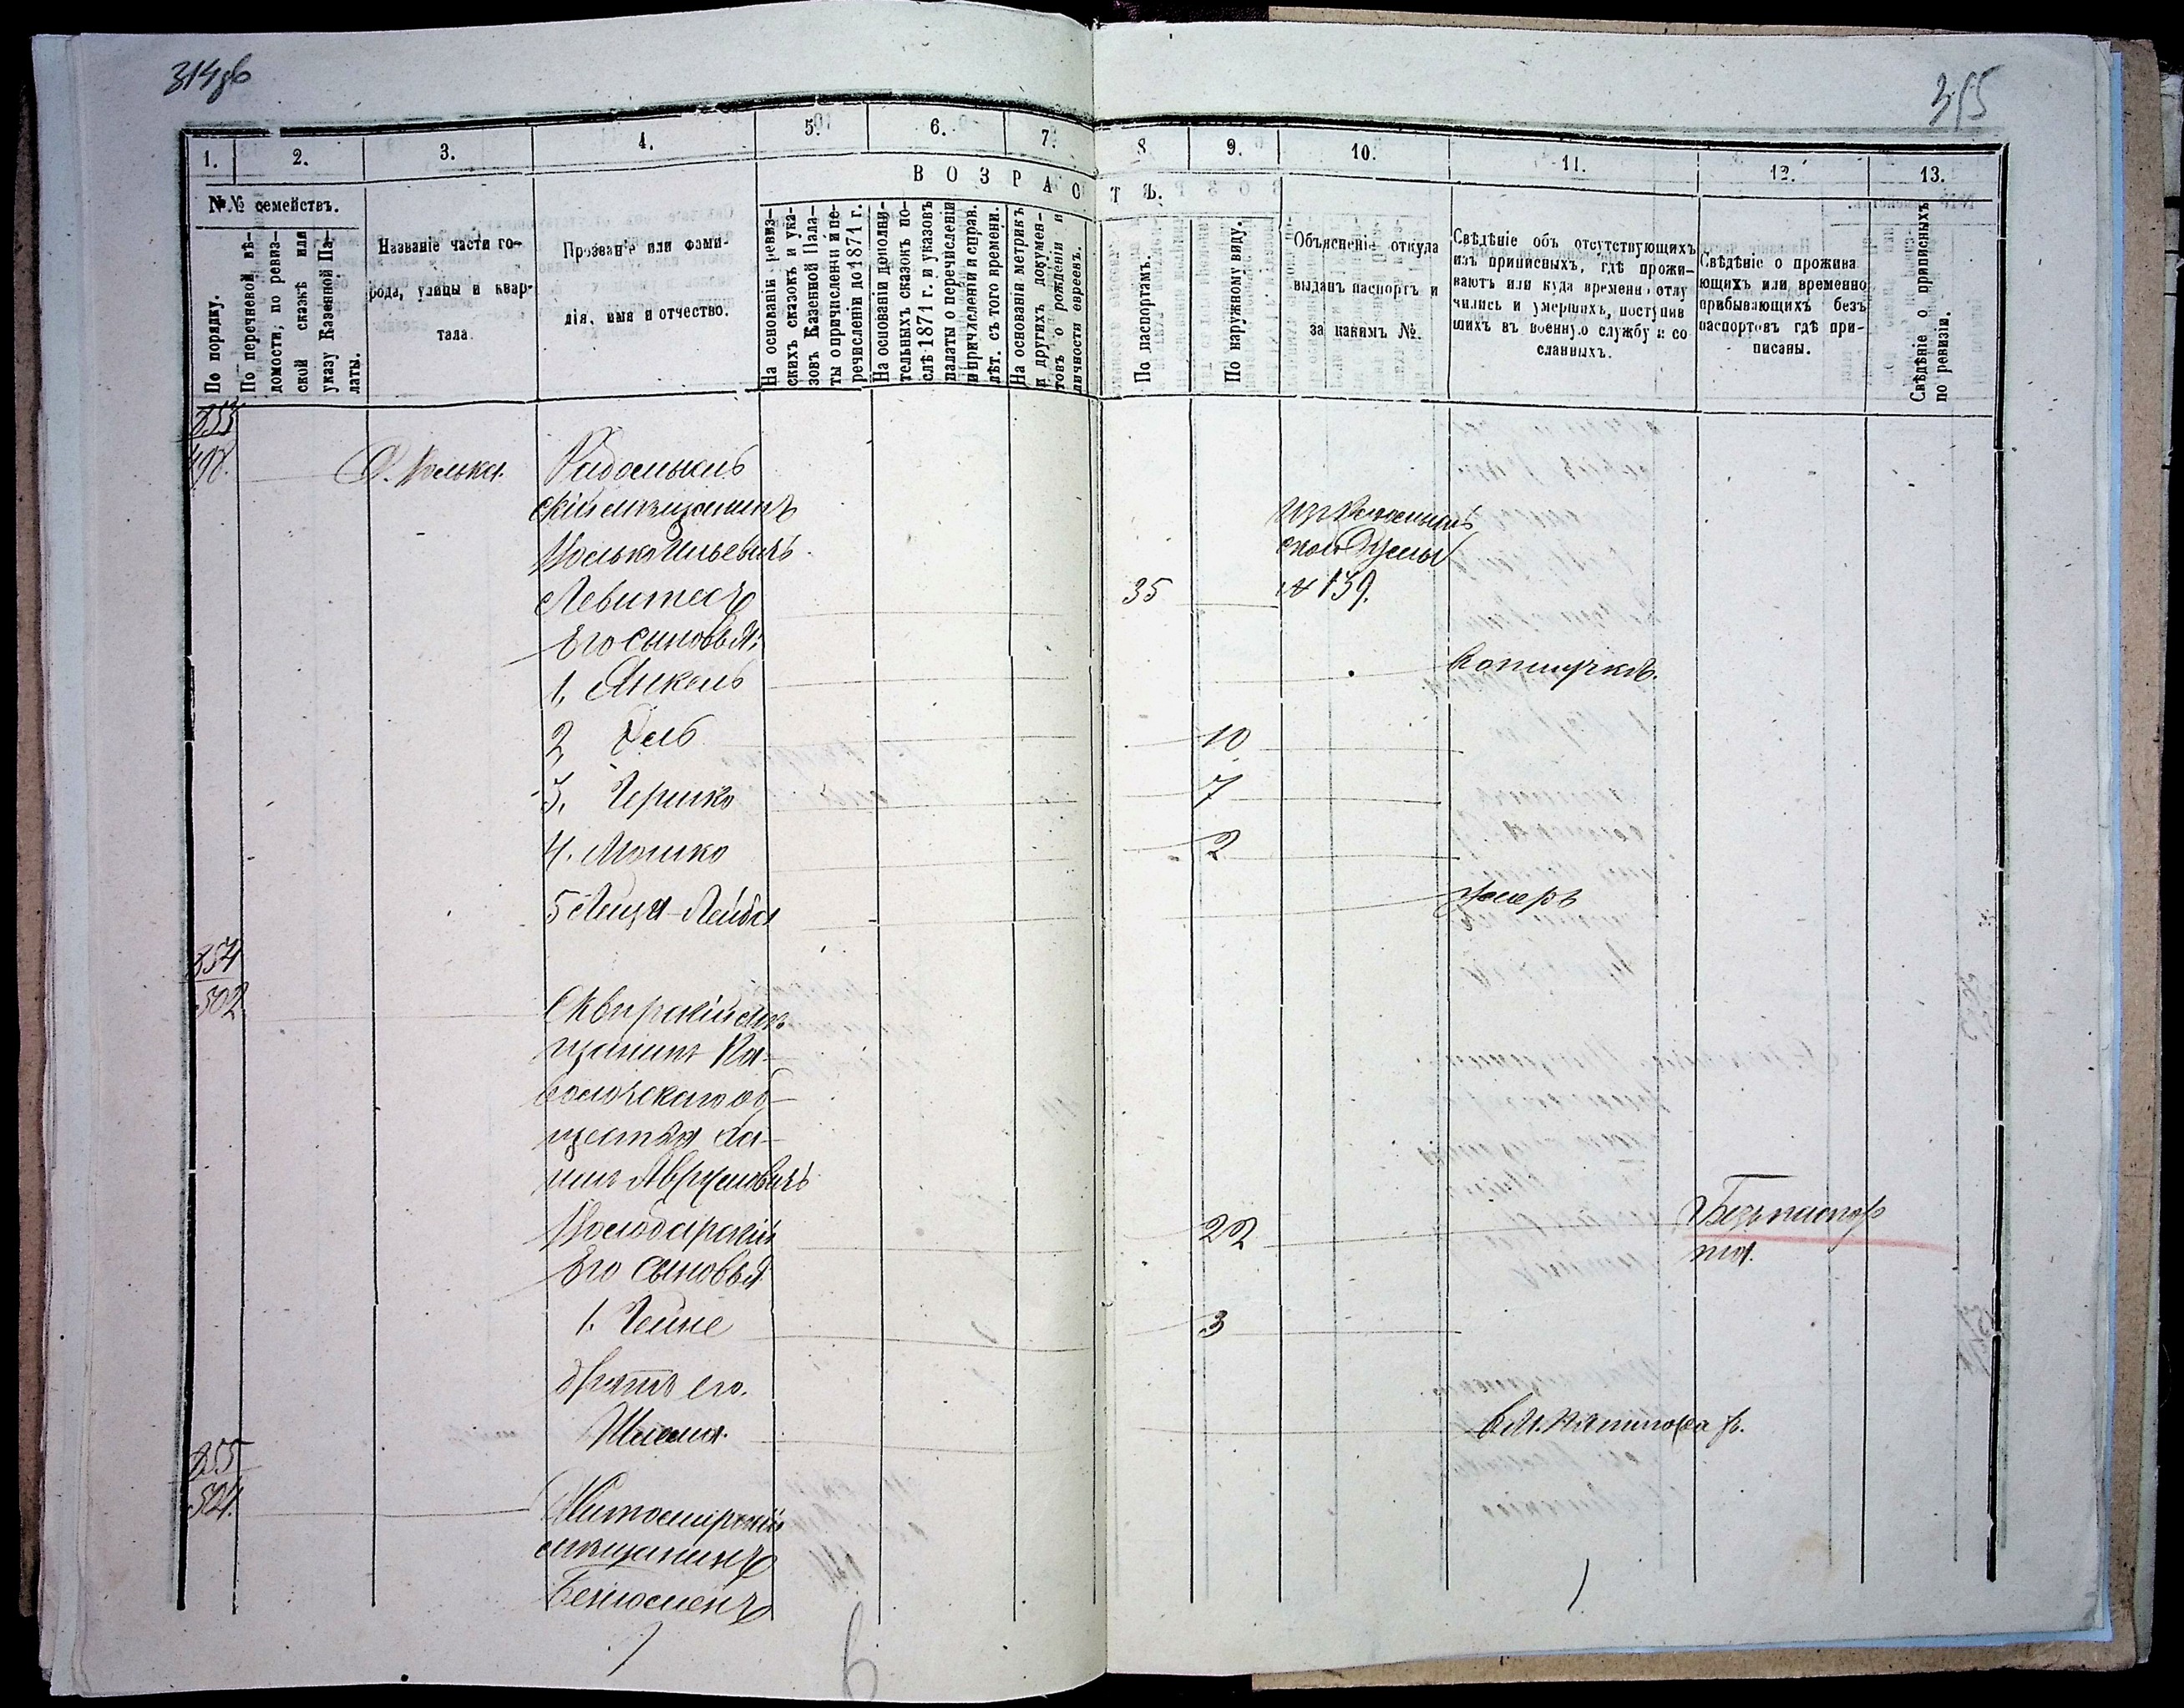 314об
315
1. 2. 3. 4. 5. 6. 7. 8. 9. 10. 11. 12. 13.
№№ семействъ.
По порядку.
По перечневой вѣ-
домости, по ревиз-
ской сказкѣ или
указу Казенной Па-
латы.
Названіе части го-
рода, улицы и квар-
тала.
Прозваніе или фами-
лія, имя и отчество.
ВОЗРАСТЪ.
На основаніи ревиз-
скихъ сказокъ и ука-
зовъ Казенной Пала-
ты о причисленіи и пе-
речисленіи до 1871 г.
На основаніи дополни-
тельныхъ сказокъ по-
слѣ 1871 г. и указовъ
палаты о перечисленіи
и причисленіи и справ.
лѣт. съ того времени.
На основаніи метрикъ
и другихъ докумен-
товъ о рожденіи и
личности евреевъ.
По паспортамъ.
По наружному виду.
Объясненіе откуда
выданъ паспортъ и
за какимъ №.
Свѣдѣніе объ отсутствующихъ
изъ приписныхъ, гдѣ прожи-
ваютъ или куда времени отлу
чились и умершихъ, поступив
шихъ въ военную службу и со
сланныхъ.
Свѣдѣніе о прожива
ющихъ или временно
прибывающихъ безъ
паспортовъ гдѣ при-
писаны.
Свѣдѣніе о приписныхъ
по ревизіи.
853
498.
Радомысль
скій мѣщанинъ
Волько Ильевичъ
Левитасъ 35 № 139.
Его сыновья:
1. Янкель
2 10
3. Гершко 7
4. Мошко 2
5 Лейба умеръ
854
502
Сквирскій мѣ
щанинъ Па-
волочскаго об-
щества Ха-
имъ Аврумовичъ
Володарскій 22 Безъ паспор
та.
Его сыновья
1. 3
братъ его.
Шлема.
855
504.
Житомирскій
мѣщанинъ
Беньюменъ